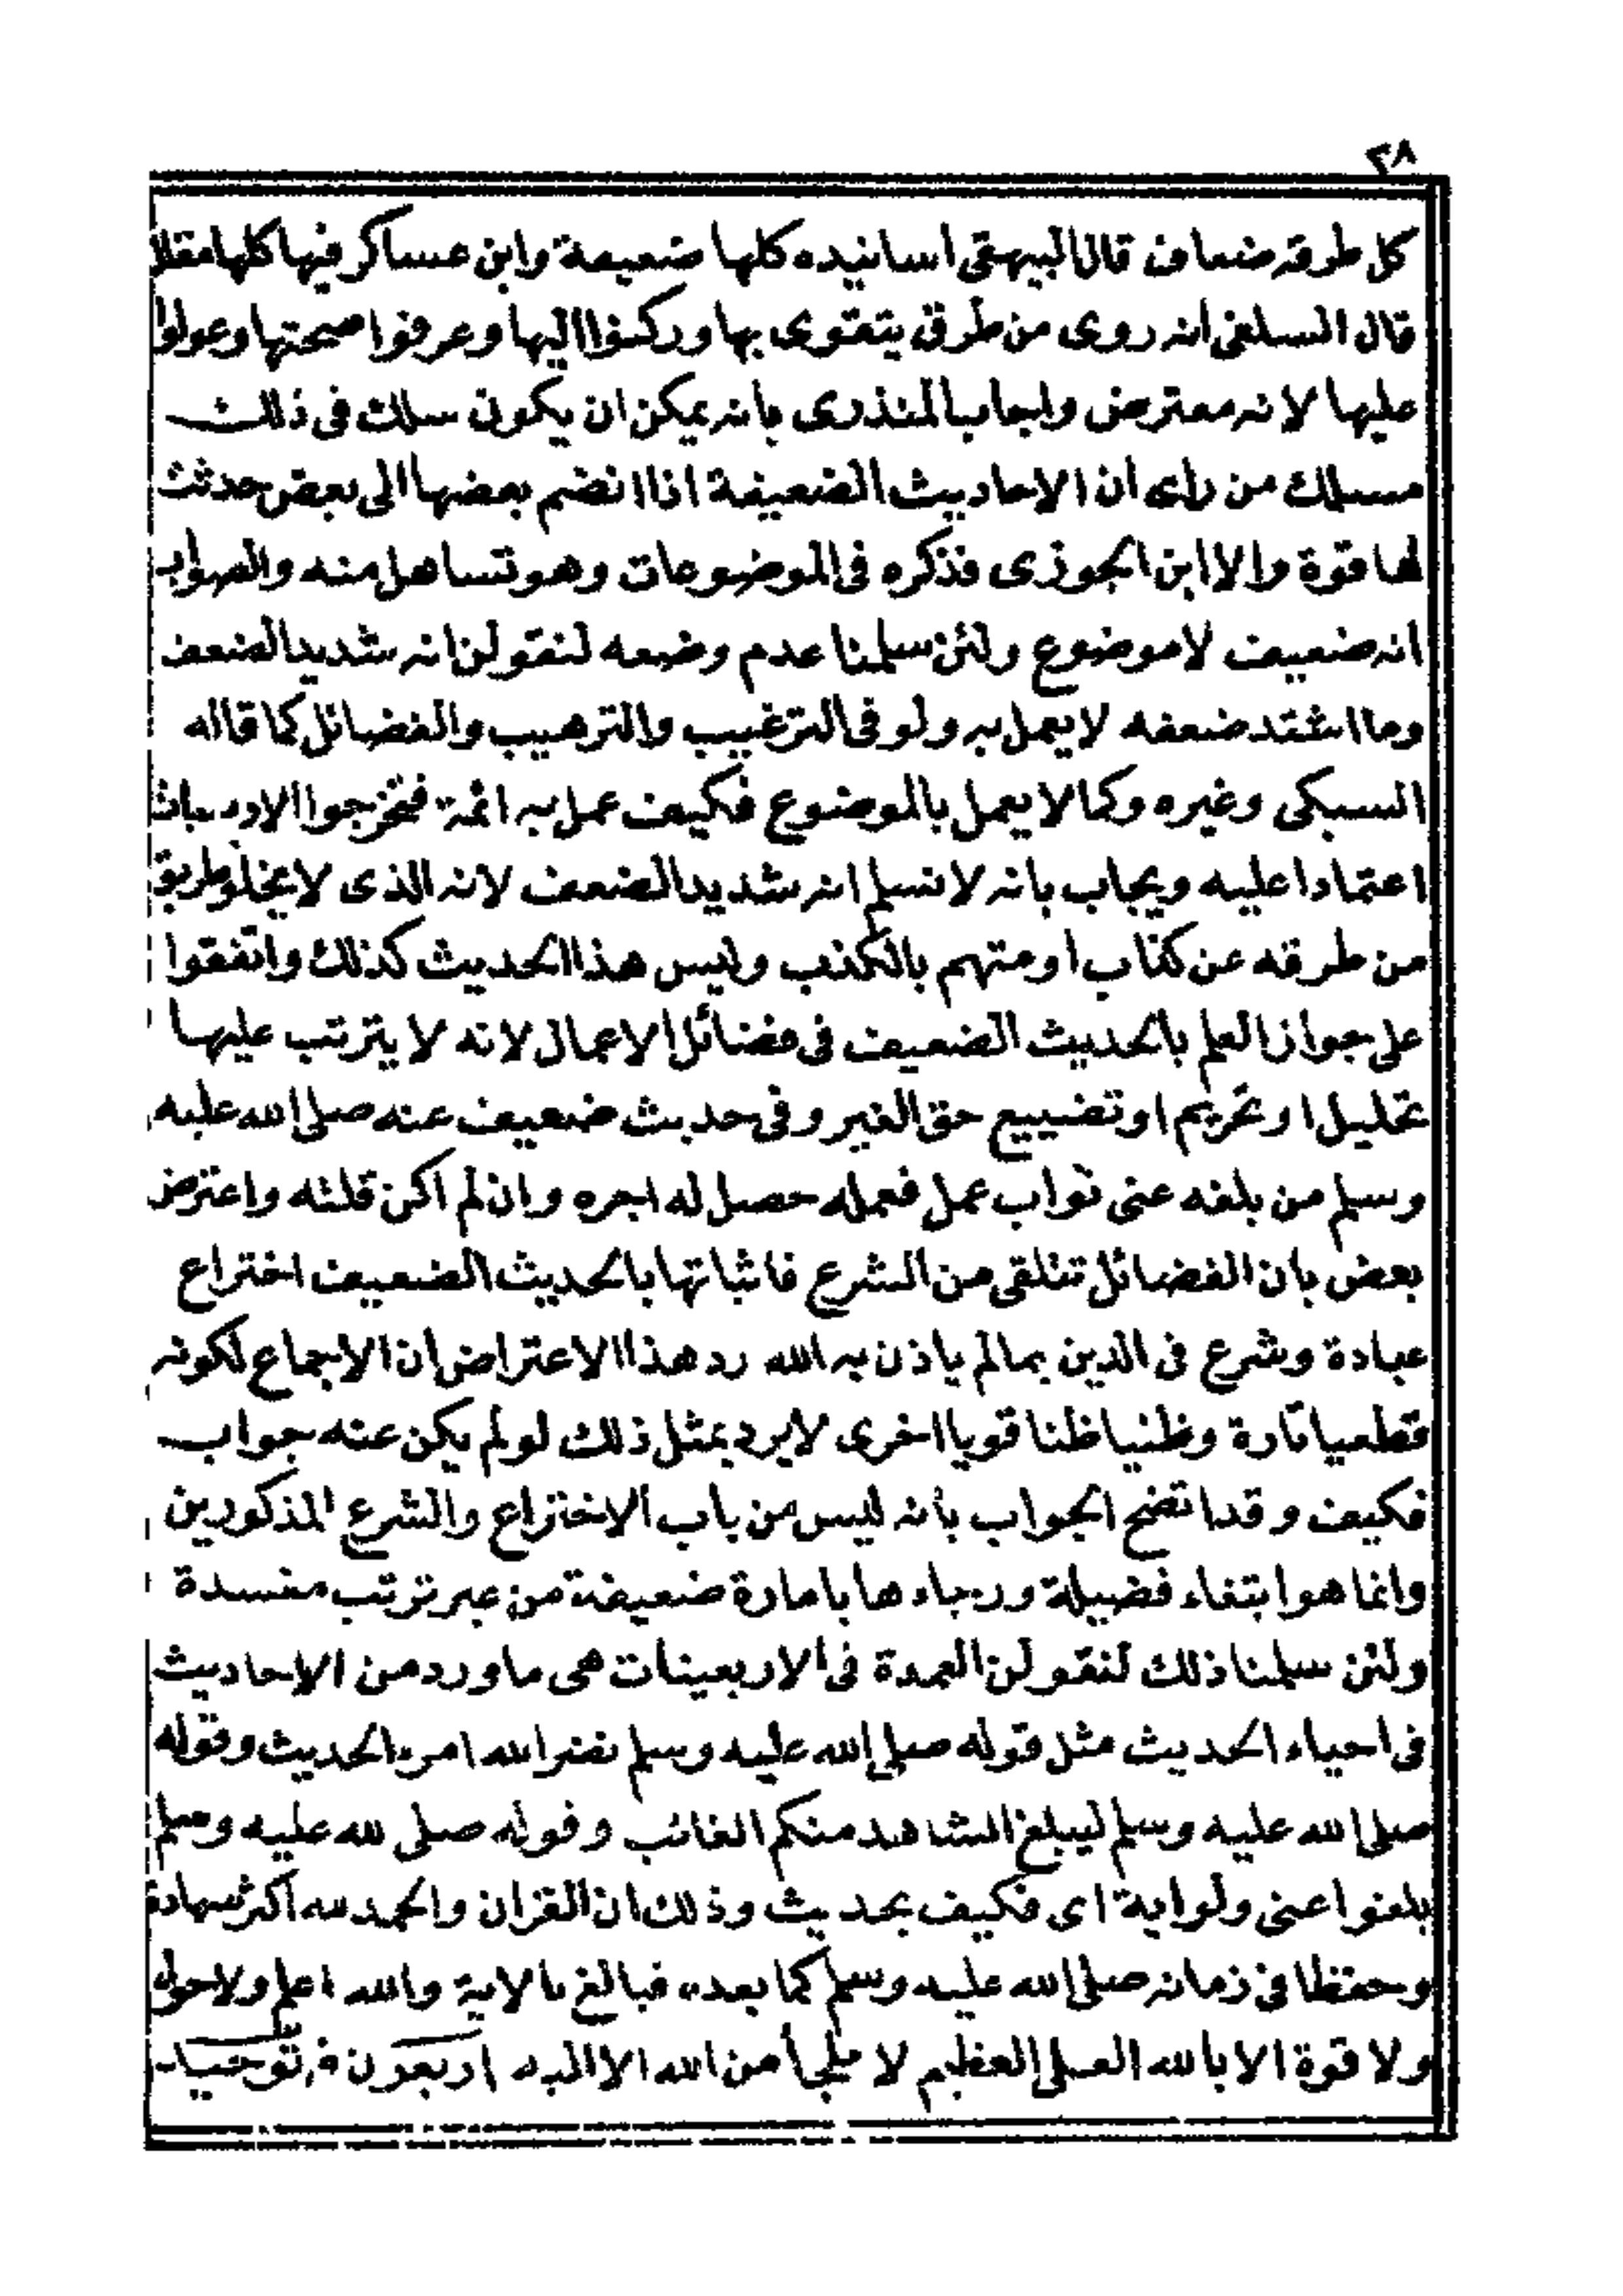 ٢٨
كل طرقه ضعاف قال البيهقى اسانيده كلها ضعيفة وابن عساكر فيها كلها مقلا
قال السلفى انه روى من طرق يتقوى بها وركنوا اليها وعرفوا صحتها وعولوا
عليها لانه معترض واجاب المنذرى بانه يمكن ان يكون سلك فى ذلك
مسلك من راى ان الاحاديث الضعيفة اذا انضم بعضها الى بعض حدثت
لها قوة والا ابن الجوزى فذكره فى الموضوعات وهو تساهل منه والصواب
انه ضعيف لا موضوع ولئن سلمنا عدم وضعه لنقولن انه شديد الضعف
وما اشتد ضعفه لا يعمل به ولو فى الترغيب والترهيب والفضائل كما قاله
السبكى وغيره وكما لا يعمل بالموضوع فكيف عمل به ائمة فخرجوا الاربعينات
اعتمادا عليه ويجاب بانه لا نسلم انه شديد الضعف لانه الذى لا يخلو طريق
من طرقه عن كذاب او متهم بالكذب وليس هذا الحديث كذلك واتفقوا
على جواز العلم بالحديث الضعيف فى فضائل الاعمال لانه لا يترتب عليها
تحليل او تحريم او تضييع حق الغير وفى حديث ضعيف عنه صلى الله عليه
وسلم من بلغه عنى ثواب عمل فعمله حصل له اجره وان لم اكن قلته واعترض
بعض بان الفضائل تتلقى من الشرع فاثباتها بالحديث الضعيف اختراع
عبادة وشرع فى الدين بما لم ياذن به الله رد هذا الاعتراض ان الاجماع لكونه
قطعيا تارة وظنيا ظنا قويا اخرى لا يرد بمثل ذلك لو لم يكن عنه جواب
فكيف وقد اتضح الجواب بانه ليس من باب الاختراع والشرع المذكورين
وانما هو ابتغاء فضيلة ورجاءها بامارة ضعيفة من غير ترتب مفسدة
ولئن سلمنا ذلك لنقولن العمدة فى الاربعينات هى ما ورد من الاحاديث
فى احياء الحديث مثل قوله صلى الله عليه وسلم نضر الله امرء الحديث وقوله
صلى الله عليه وسلم ليبلغ الشاهد منكم الغائب وقوله صلى لله عليه وسلم
بلغوا عنى ولو اية اى فكيف بحديث وذلك ان القران والحمد لله اكثر شهادة
وحفظا فى زمانه صلى الله عليه وسلم كما بعده فبالغ بالاية والله اعلم ولا حول
ولا قوة الا بالله العلى العظيم لا ملجأ من الله الا اليه اربعون فى توحيد